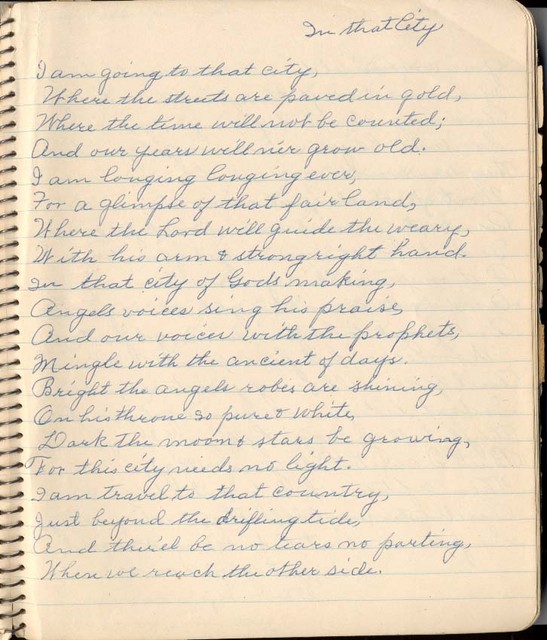 In that City
I am going to that city,
Where the streets are paved in gold,
Where the time will not be counted;
And our years will n'er grow old.
I am longing longing ever,
For a glimpse of that fair land,
Where the Lord will guide the weary,
With his arm & strong right hand.
In that city of Gods making,
Angels voices sing his praise,
And our voices with the prophets,
Mingle with the ancient of days.
Bright the angels robes are shining,
On his throne so pure & white,
Dark the moon & stars be growing,
For this city needs no light.
I am travel to that country,
Just beyond the drifting tide,
And there'el be no tears no parting,
When we reach the other side.